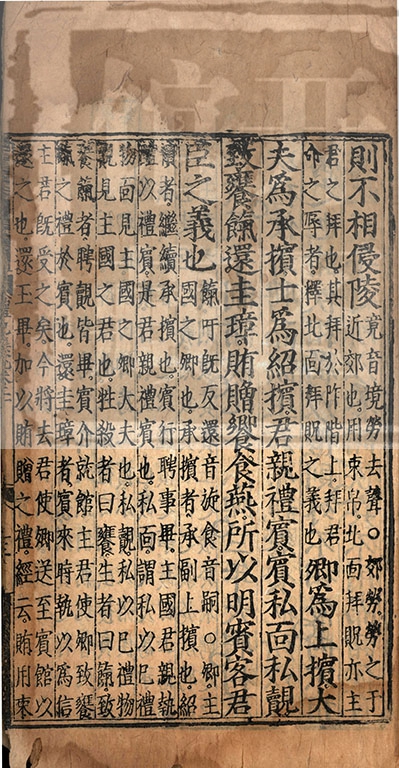 則不相侵陵
竟音境勞去聲○郊勞勞之于
近郊也用束帛北面拜貺亦主
君之拜也其拜於阼階上拜君
命之辱者釋北面拜貺之義也
卿爲上擯大
夫爲承擯士爲紹擯君親禮賓賓私面私覿
致饔餼還圭璋賄贈饗食燕所以明賓客君
臣之義也
餼吁既反還音旋食音嗣○卿主
國之卿也承擯者承副上擯也紹
擯者繼續承擯也賓行聘事畢主國君親執
醴以禮賓是君親禮賓也私面謂私以己禮
物面見主國之卿大夫也私覿私以己禮物
覿見主國之君也牲殺者曰饔生者曰餼致
饔餼者聘覿皆畢賓介就館主君使卿致饔
餼之禮於賓也還圭璋者賓來時執以爲信
主君既受之矣今將去君使卿送至賓館以
還之也還玉畢加以賄贈之禮經云賄用束